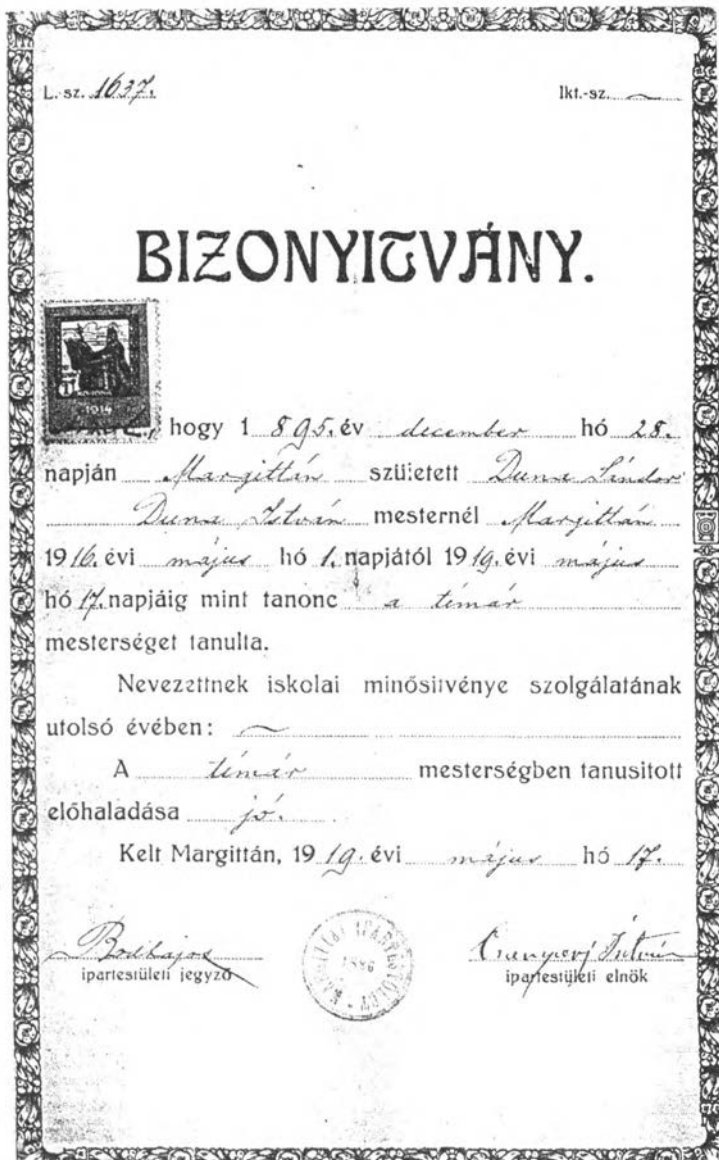 L. sz. 1637.
Ikt.-sz. ~
BIZONYITVÁNY.
1914
hogy 1 895. év december hó 28.
napján Margittán született Duna Sándor
Duna István mesternél Margittán
1916. évi május hó 1. napjától 1919. évi május
hó 17. napjáig mint tanonc a tímár
mesterséget tanulta.
Nevezettnek iskolai minősitvénye szolgálatának
utolsó évében: ~
A tímár mesterségben tanusitott
előhaladása jó.
Kelt Margittán, 1919. évi május hó 17.
ipartestületi jegyző
MARGITTAI IPARTESTÜLET
1886
István
ipartestületi elnök